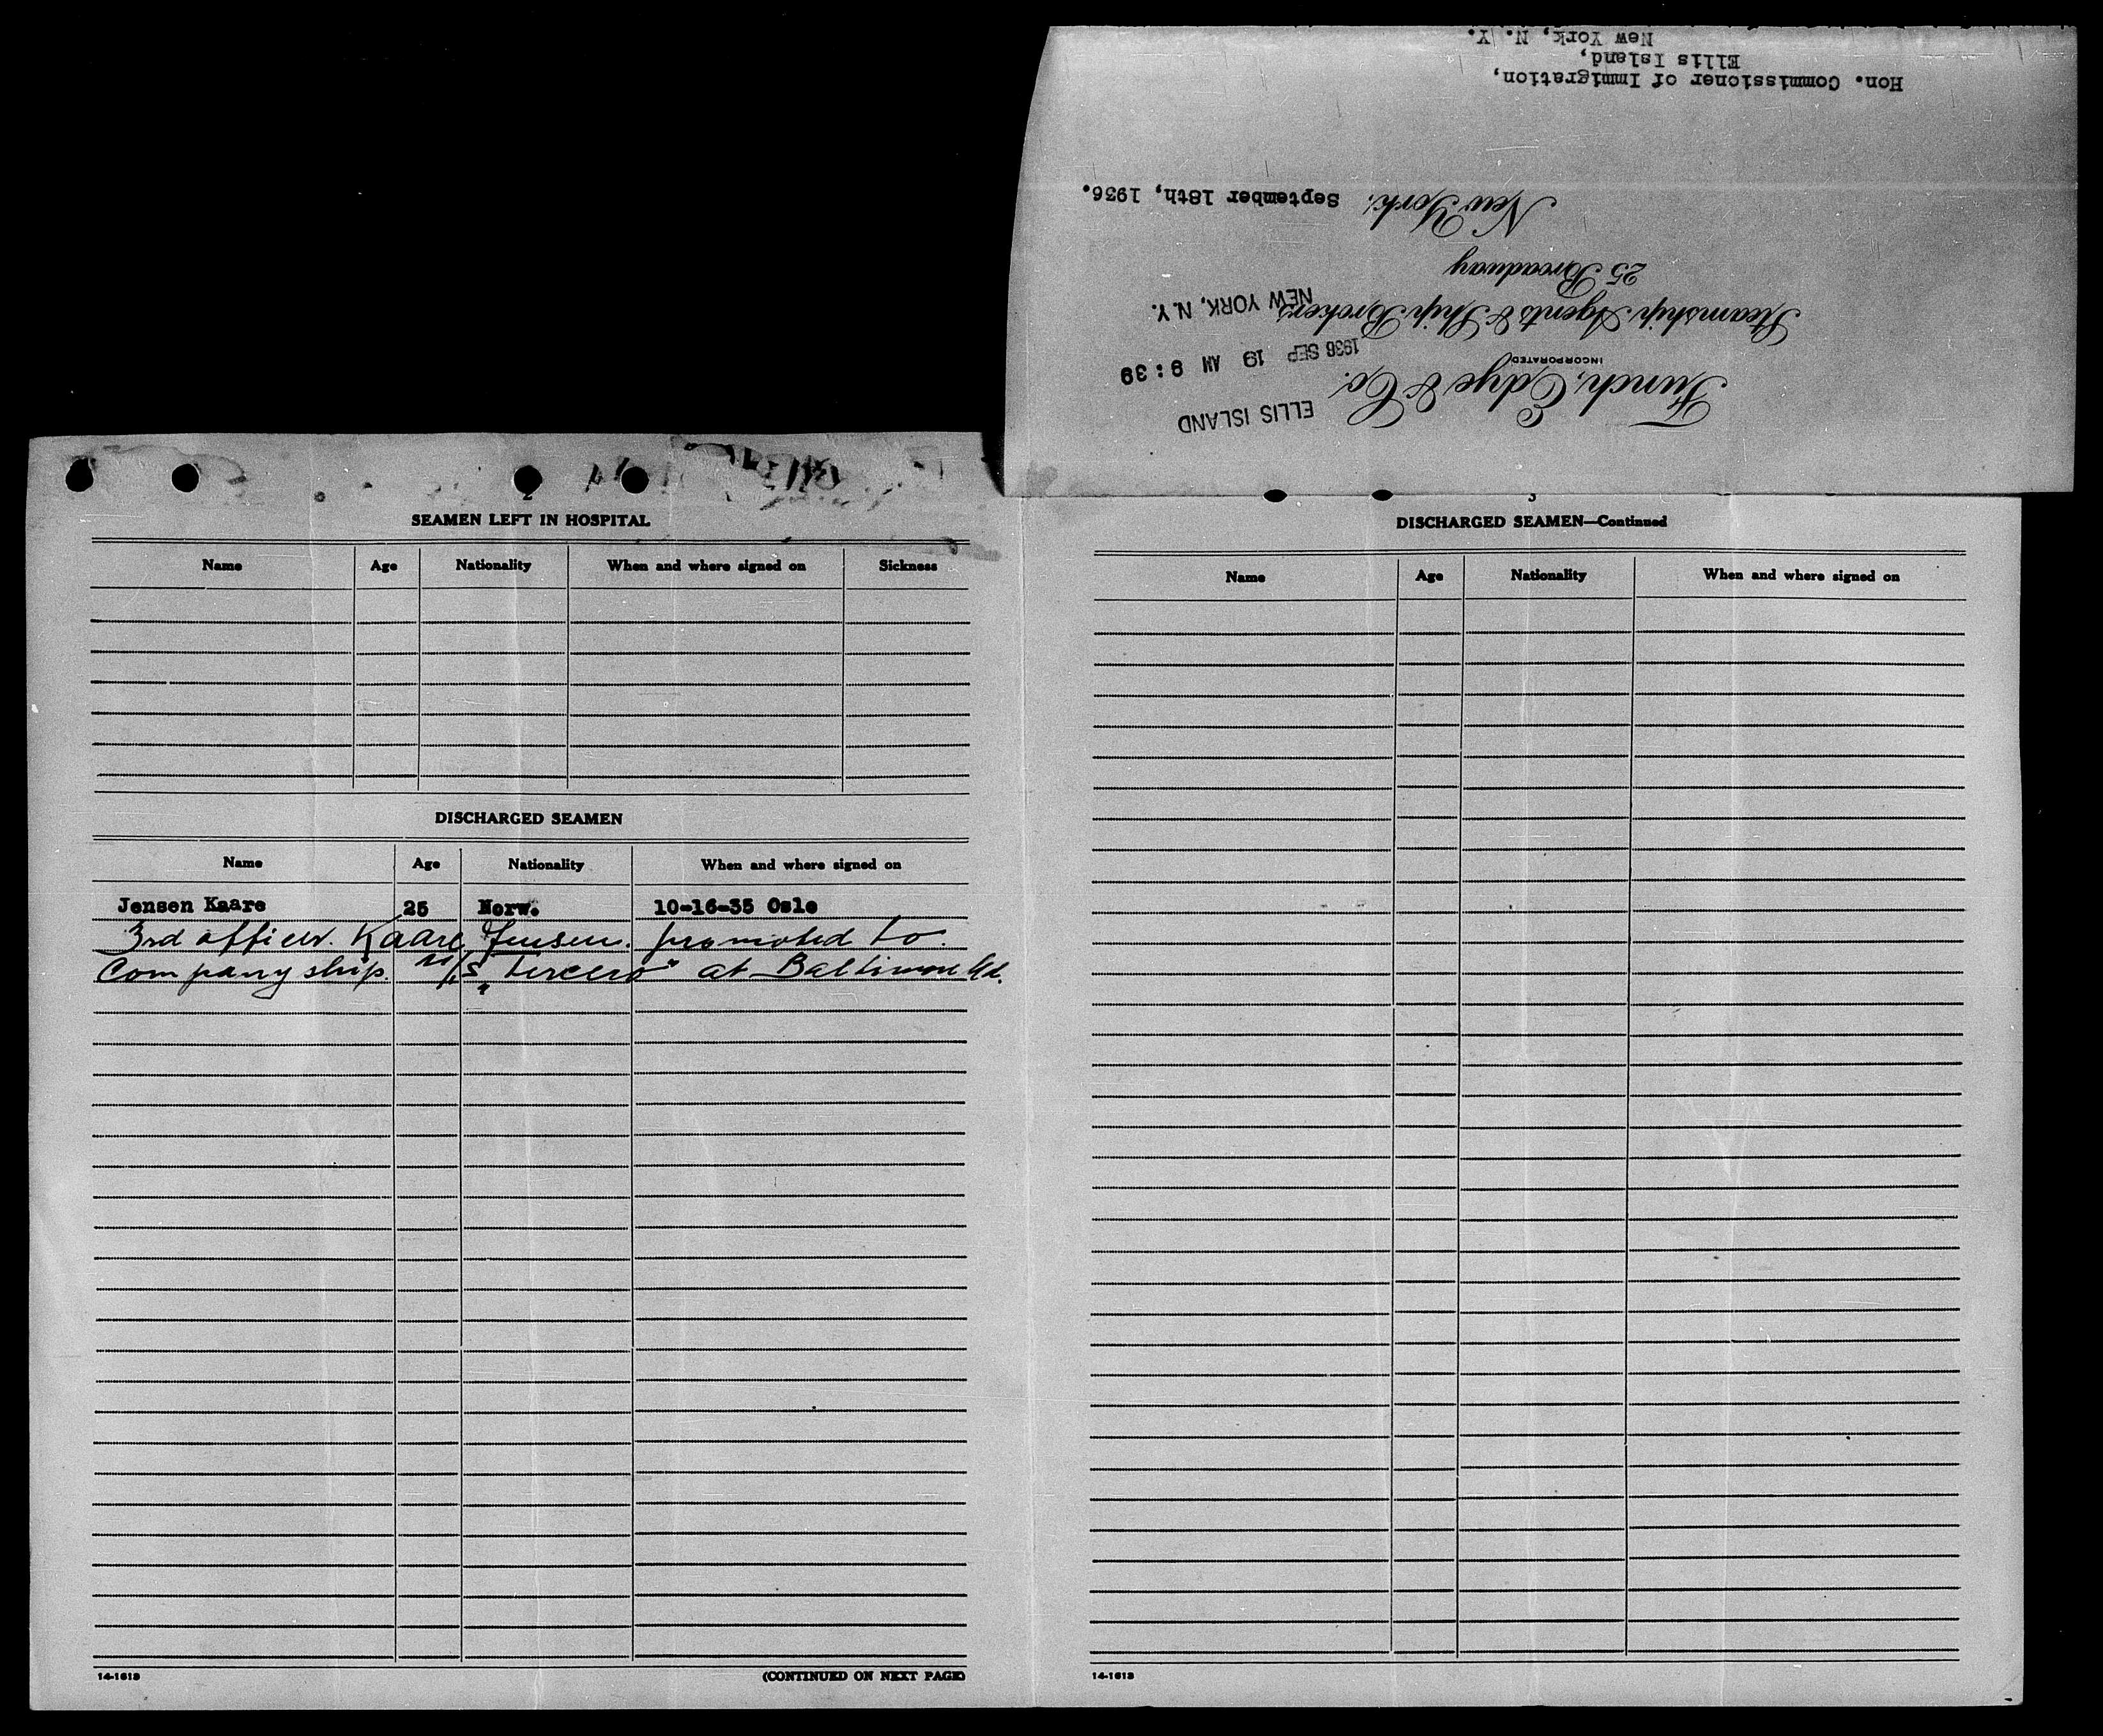 Funch, Edye & Co.
INCORPORATED
Steamship Agents & Ship Brokers
25 Broadway
New York, September 18th, 1936.
ELLIS ISLAND
1936 SEP 19 AM 9:39
NEW YORK, N.Y.
Hon. Commissioner of Immigration,
Ellis Island,
New York, N. Y.
2
SEAMEN LEFT IN HOSPITAL
Name Age Nationality When and where signed on Sickness
DISCHARGED SEAMEN
Name Age Nationality When and where signed on
Jensen Kaare 25 Norw. 10-16-35 Oslo
3rd officer. Kaare Jensen. promoted to.
Company ship. m/s "Tercero" at Baltimore Md.
14-1613 (CONTINUED ON NEXT PAGE)
3
DISCHARGED SEAMEN—Continued
Name Age Nationality When and where signed on
14-1613